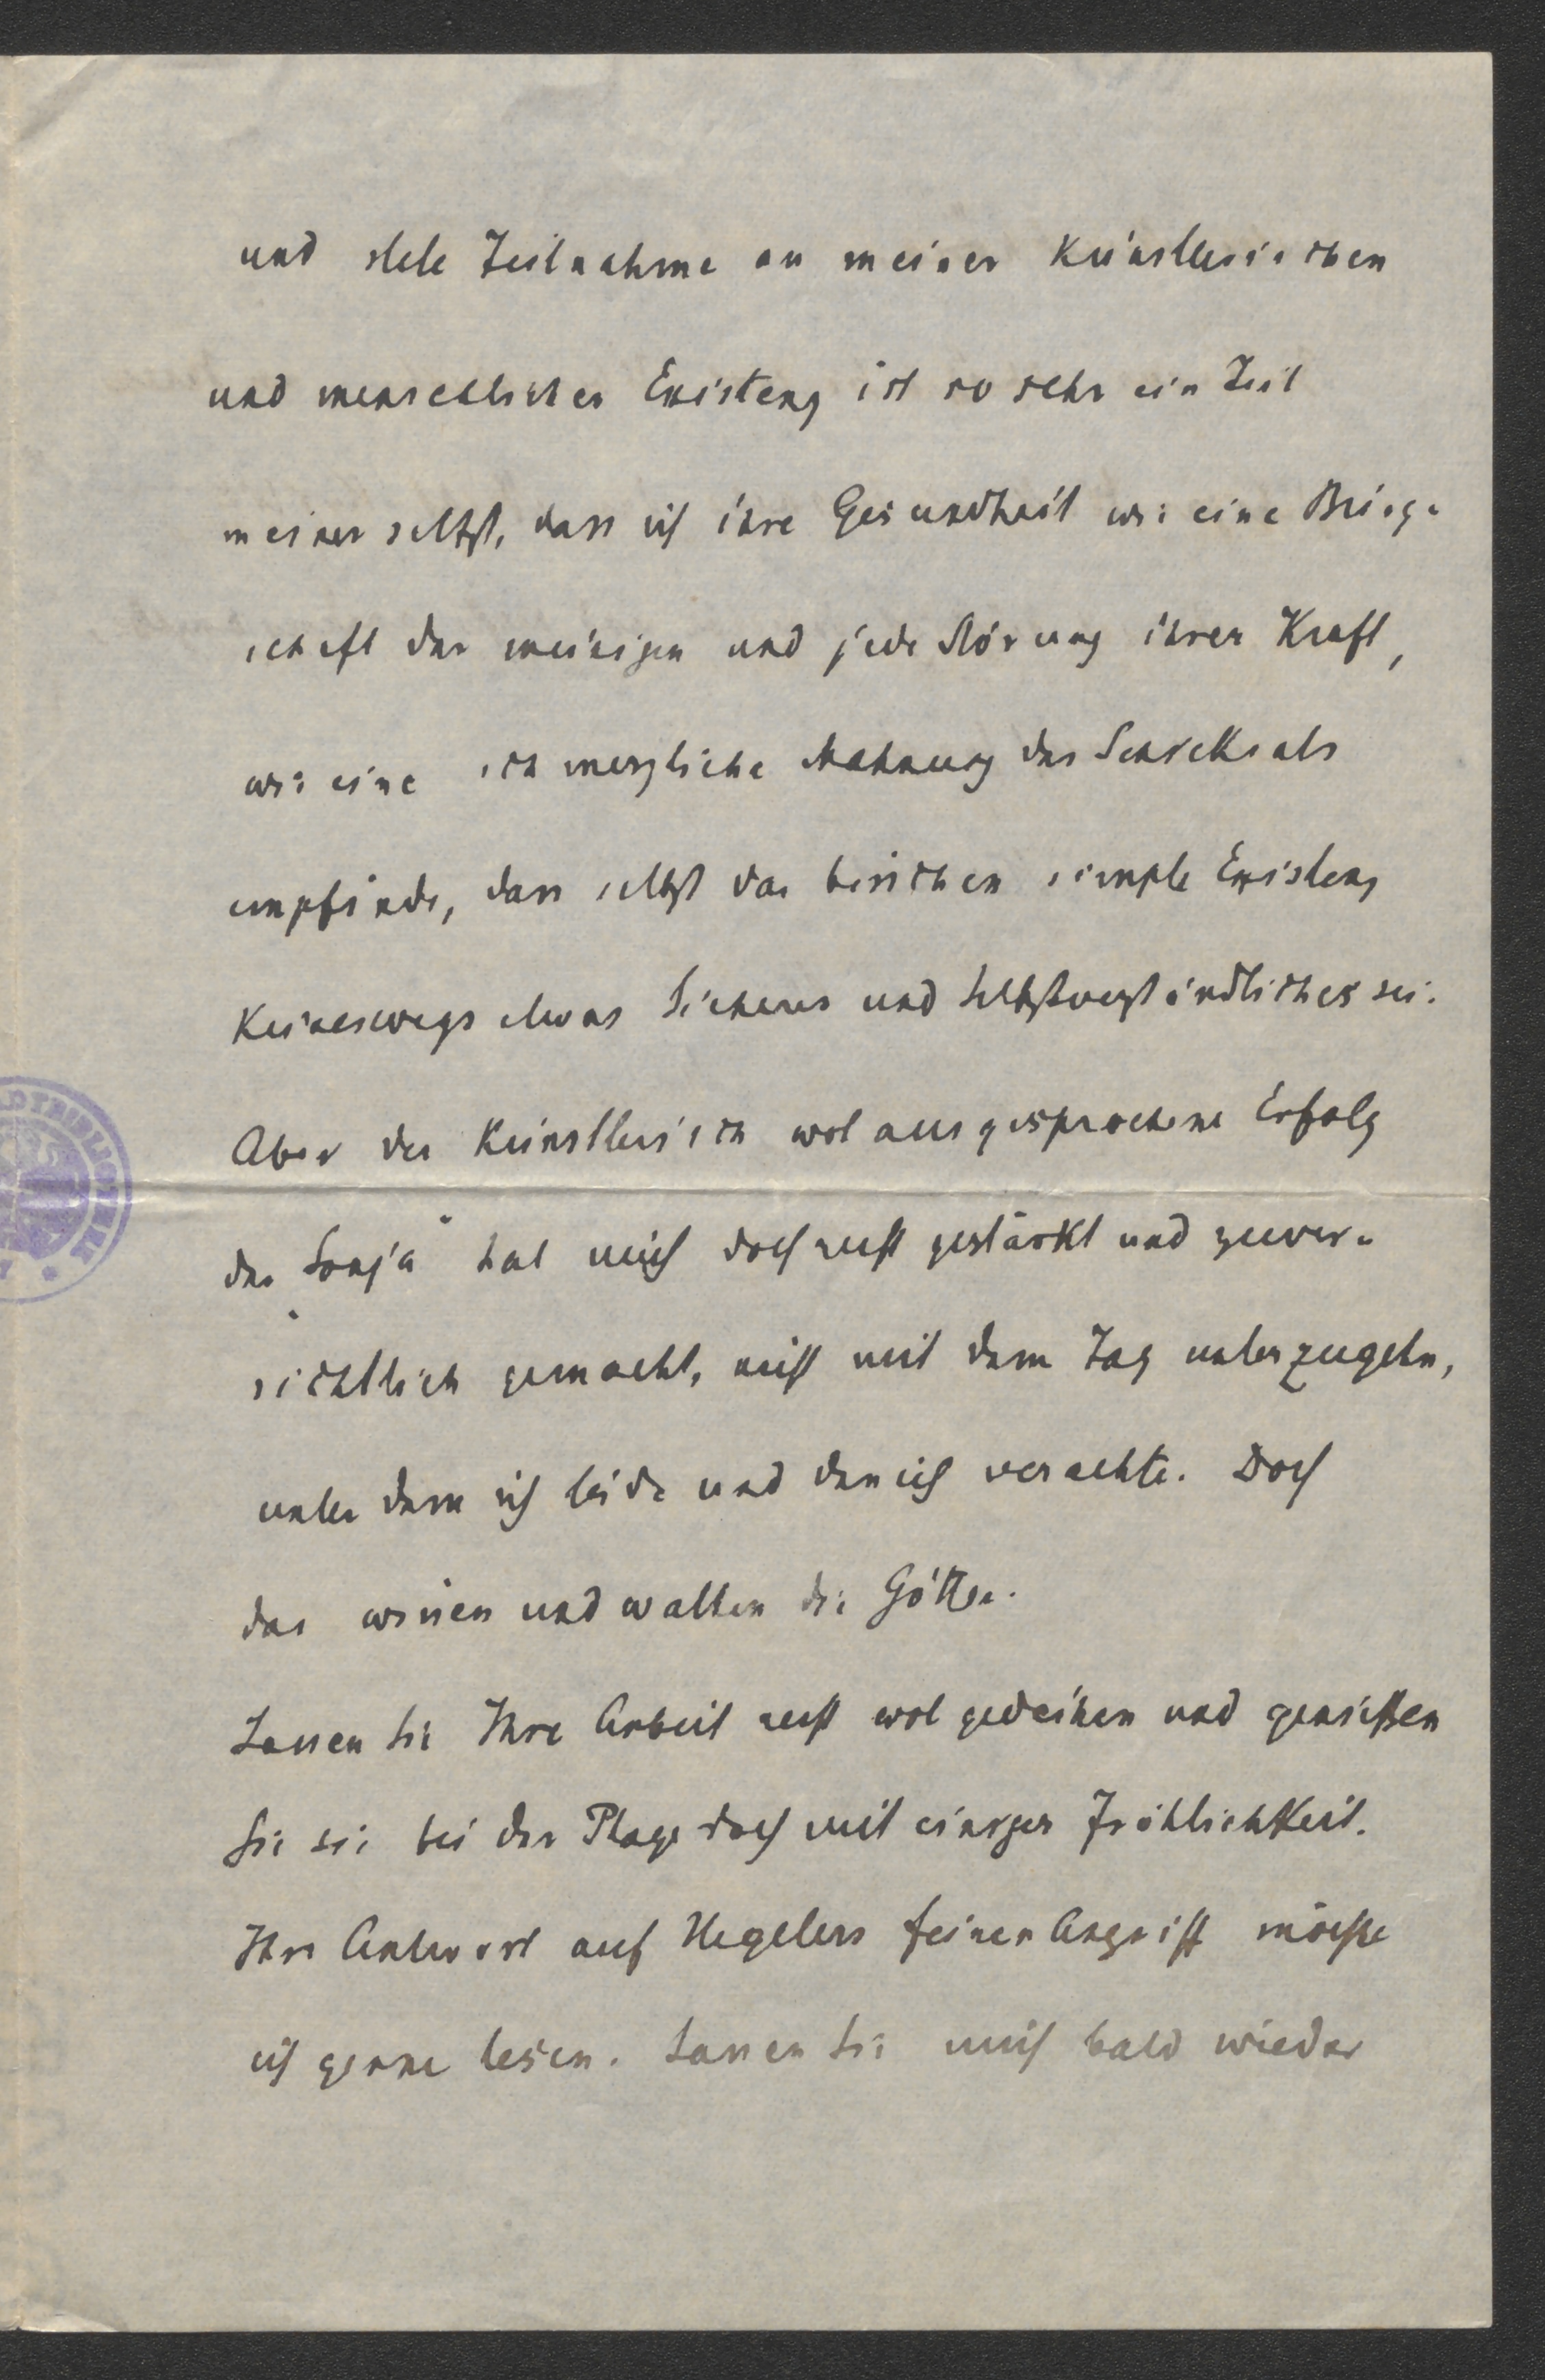 und stete Teilnahme an meiner künstlerischen
und menschlicher Existenz ist so sehr ein Teil
meiner selbst, dass ich ihre Gesundheit wie eine Bürg-
schaft der meinigen und jede Störung ihrer Kraft,
wie eine schmerzliche Mahnung des Schicksals
empfinde, dass selbst das bisschen simple Existenz
keineswegs etwas Sicheres und Selbstverständliches sei.
Aber der künstlerisch wol ausgesprochene Erfolg
der „Sonja“ hat mich doch recht gestärkt und zuver-
sichtlich gemacht, nicht mit dem Tag unterzugehn,
unter dem ich leide und den ich verachte. Doch
das wissen und walten die Götter.
Lassen Sie Ihre Arbeit recht wol gedeihen und geniessen
Sie sie bei der Plage doch mit einiger Fröhlichkeit.
Ihre Antwort auf Hegelers feinen Angriff möchte
ich gerne lesen. Lassen Sie mich bald wieder